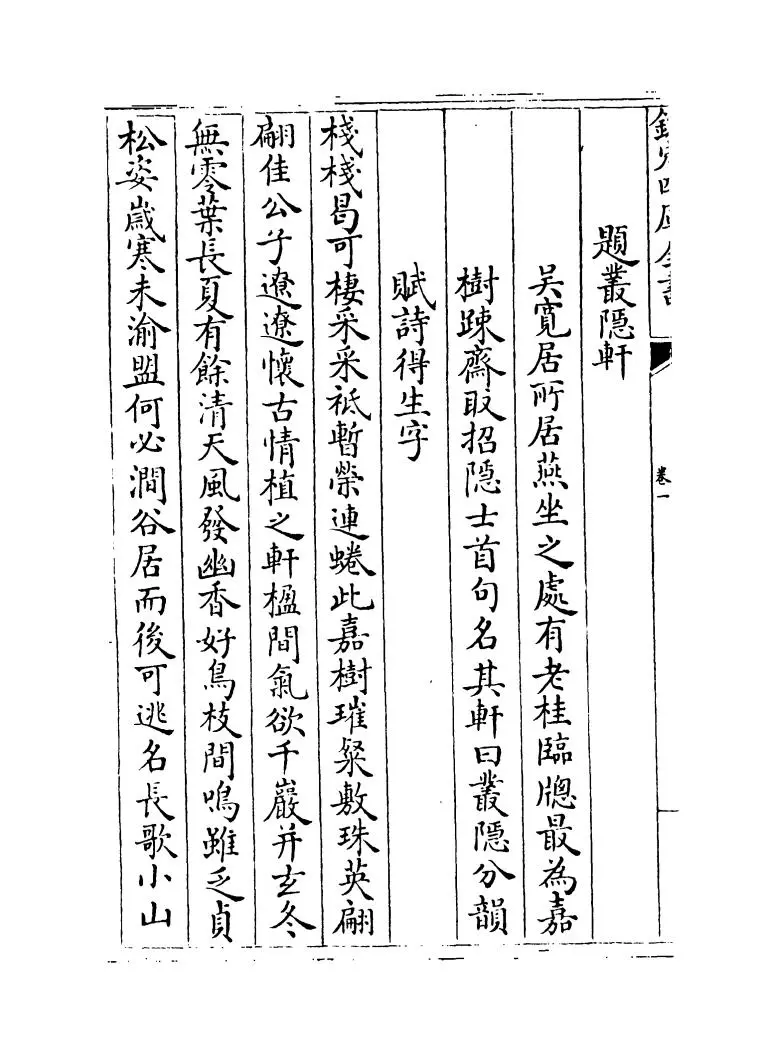 欽定四庫全書
卷一
題叢隱軒
吴寛居所居燕坐之處有老桂臨牕最為嘉
樹踈齋取招隱士首句名其軒曰叢隱分韻
賦詩得生字
棧棧曷可棲采采祗暫榮連蜷此嘉樹璀粲敷珠英翩
翩佳公子遼遼懷古情植之軒楹間氣欲千巖并玄冬
無零葉長夏有餘清天風發幽香好鳥枝間鳴雖乏貞
松姿嵗寒未渝盟何必澗谷居而後可逃名長歌小山